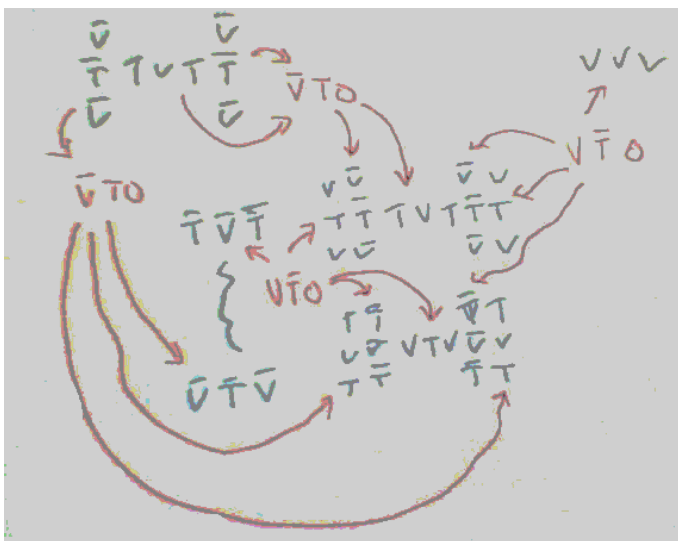 V̄ V̄
T̄ T V T T̄
V̄ V̄
V̄ T O
V V V
V T̄ O
V̄ T O
V V̄ V̄ V
T T̄ T V T T̄ T
V V̄ V̄ V
T̄ V̄ T̄
V T̄ O
T T̄ V̄ T
V V̄ V T V V̄ V
T T̄ T̄ T
V̄ T̄ V̄